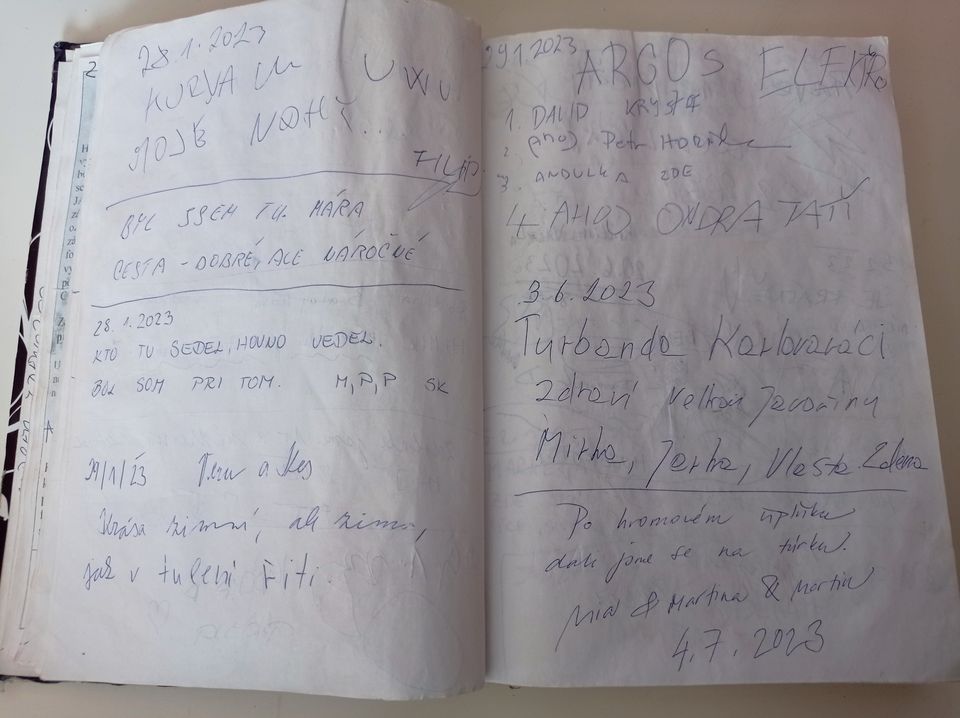 28.1.2023
KURVA UWU
MOJE NOHY....
FILIP
BYL JSEM TU. MÁRA
CESTA - DOBRÉ, ALE NÁROČNÉ
28.1.2023
KTO TU SEDEL, HOVNO VEDEL.
BOL SOM PRI TOM. M, P, P SK
29/1/23 a
Krása zimní, ale zima,
jak v řiti.
29.1.2023 ARGOS ELEKTRO
1. DAVID KRYŠTOF
2. (AHOJ) Petr
3. ANDULKA ZDE
4 AHOJ ONDRA TATÍ
3.6.2023
Turbanda Karlovaráci
zdraví Velkou Javořinu
Mirka, Jarka, Vlasta. Zdena
Po hromovém úplňku
dali jsme se na túrku.
Mia & Martina & Martin
4.7.2023